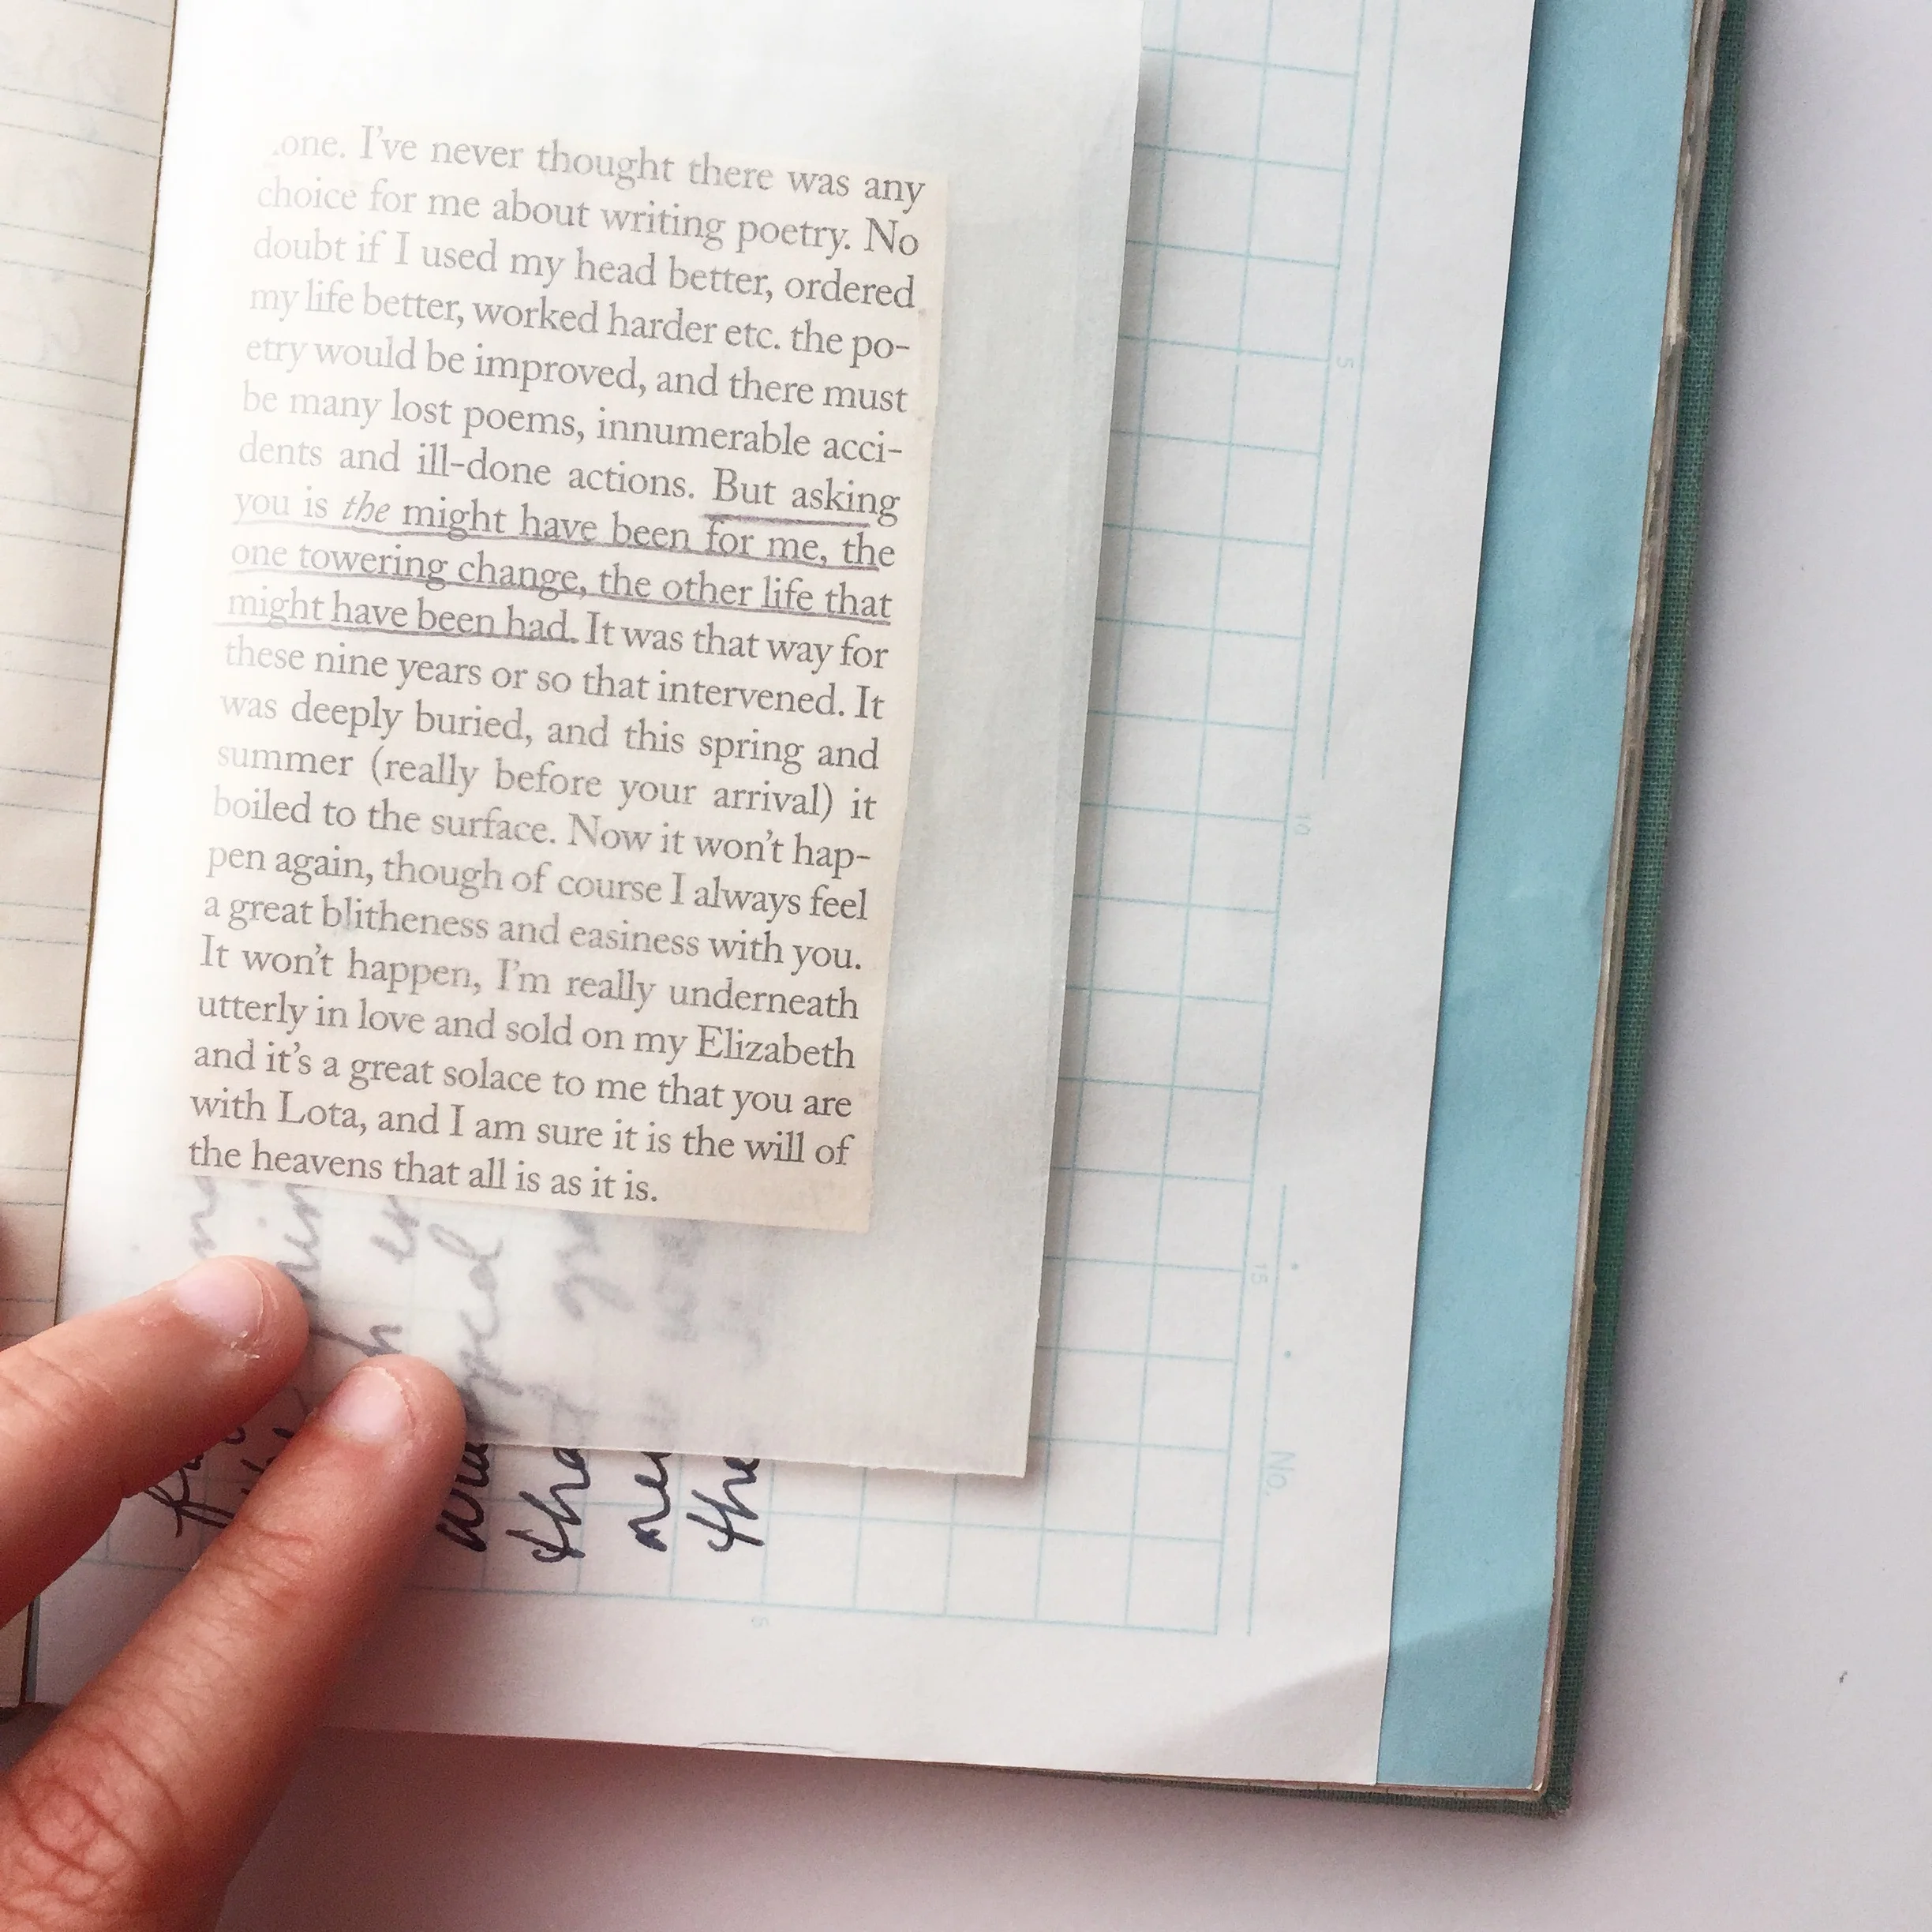 one. I've never thought there was any
choice for me about writing poetry. No
doubt if I used my head better, ordered
my life better, worked harder etc. the po-
etry would be improved, and there must
be many lost poems, innumerable acci-
dents and ill-done actions. But asking
you is the might have been for me, the
one towering change, the other life that
might have been had. It was that way for
these nine years or so that intervened. It
was deeply buried, and this spring and
summer (really before your arrival) it
boiled to the surface. Now it won't hap-
pen again, though of course I always feel
a great blitheness and easiness with you.
It won't happen, I'm really underneath
utterly in love and sold on my Elizabeth
and it's a great solace to me that you are
with Lota, and I am sure it is the will of
the heavens that all is as it is.
that
the
5
10
15
No.
5